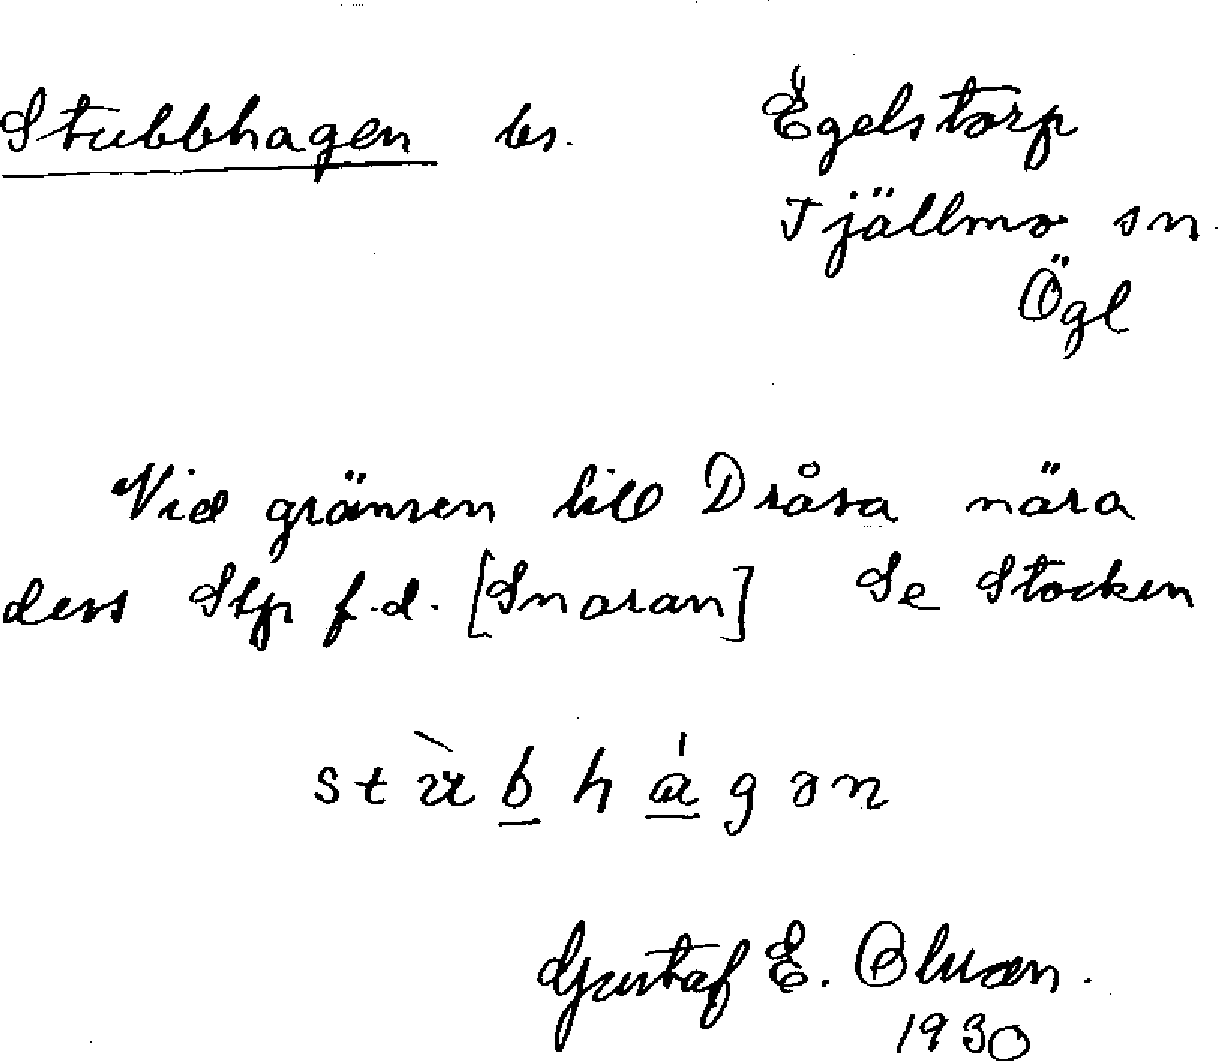 Stubbhagen bs. Egelstorp
Tjällmo sn.
Ögl
Vid gränsen till Dråsa nära
dess Stp f.d. [Snaran] Se Stocken
stu̾b̲hág̲ən
Gustaf E.
1930